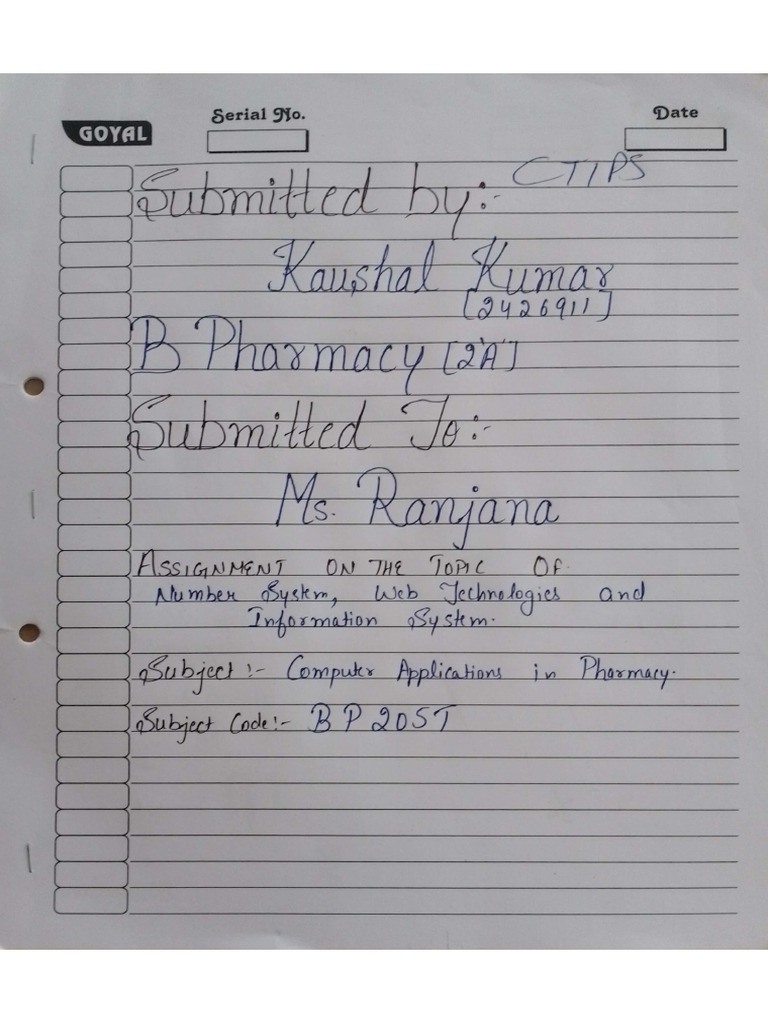 GOYAL
Serial No.
Date
Submitted by:- CTIPS
Kaushal Kumar
[2426911]
B Pharmacy [2'A']
Submitted To:-
Ms. Ranjana
ASSIGNMENT ON THE TOPIC OF.
Number System, Web Technologies and
Information System.
Subject:- Computer Applications in Pharmacy.
Subject Code:- BP205T